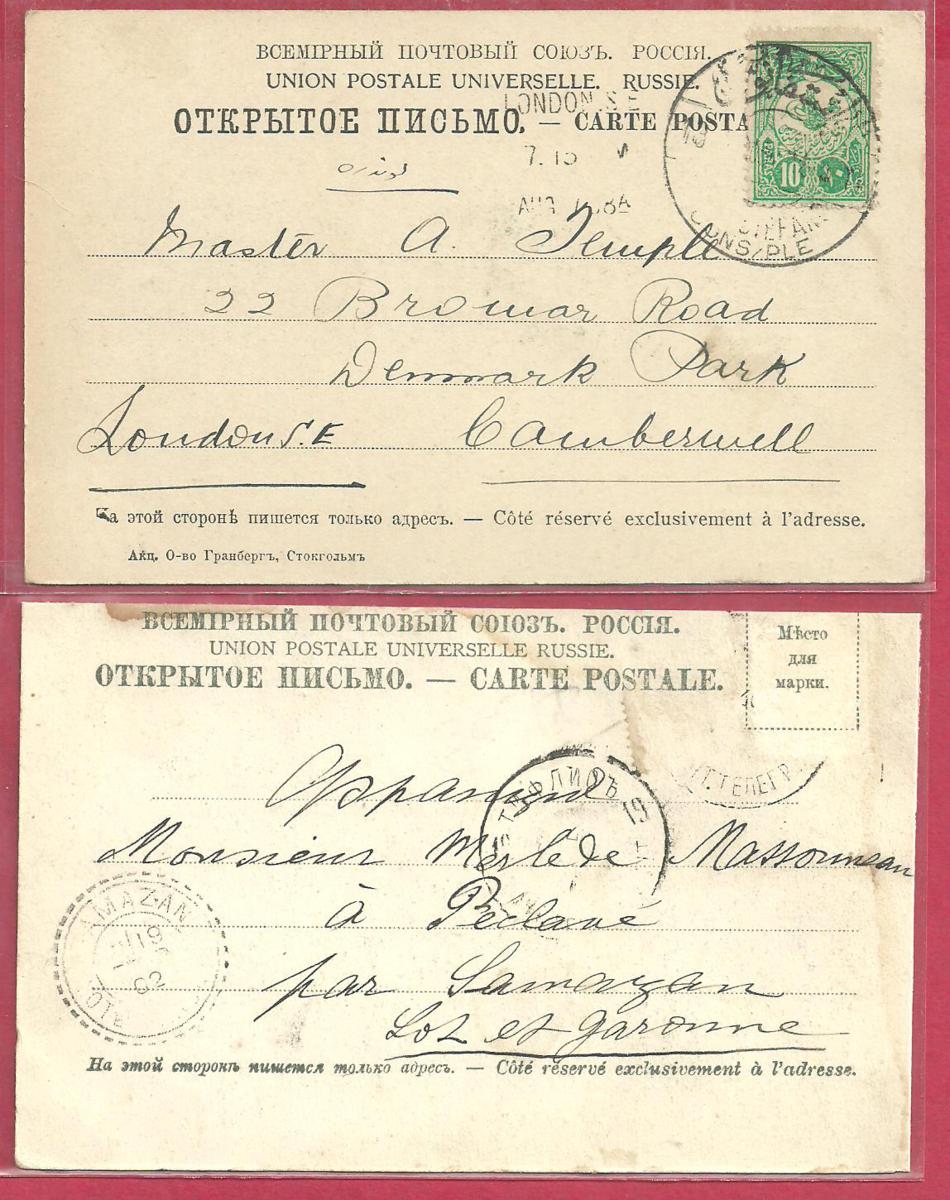 ВСЕМІРНЫЙ ПОЧТОВЫЙ СОЮЗЪ. РОССІЯ.
UNION POSTALE UNIVERSELLE. RUSSIE.
LONDON. S.E
ОТКРЫТОЕ ПИСЬМО. — CARTE POSTA
7. 15
10
لوندره
STEFAN
CONS/PLE
Master A. Temple
22 Bromar Road
Denmark Park
London S.E Camberwell
На этой сторонѣ пишется только адресъ. — Côté réservé exclusivement à l'adresse.
Акц. О-во Гранбергъ, Стокгольмъ
ВСЕМІРНЫЙ ПОЧТОВЫЙ СОЮЗЪ. РОССІЯ.
UNION POSTALE UNIVERSELLE RUSSIE.
ОТКРЫТОЕ ПИСЬМО. — CARTE POSTALE.
Мѣсто
для
марки.
Т.ТЕЛЕГР
ТИФЛИСЪ
19
Monsieur Merle de Massonneau
à
par Samazan
Lot et Garonne
AMAZAN
02
На этой сторонѣ пишется только адресъ. — Côté réservé exclusivement à l'adresse.